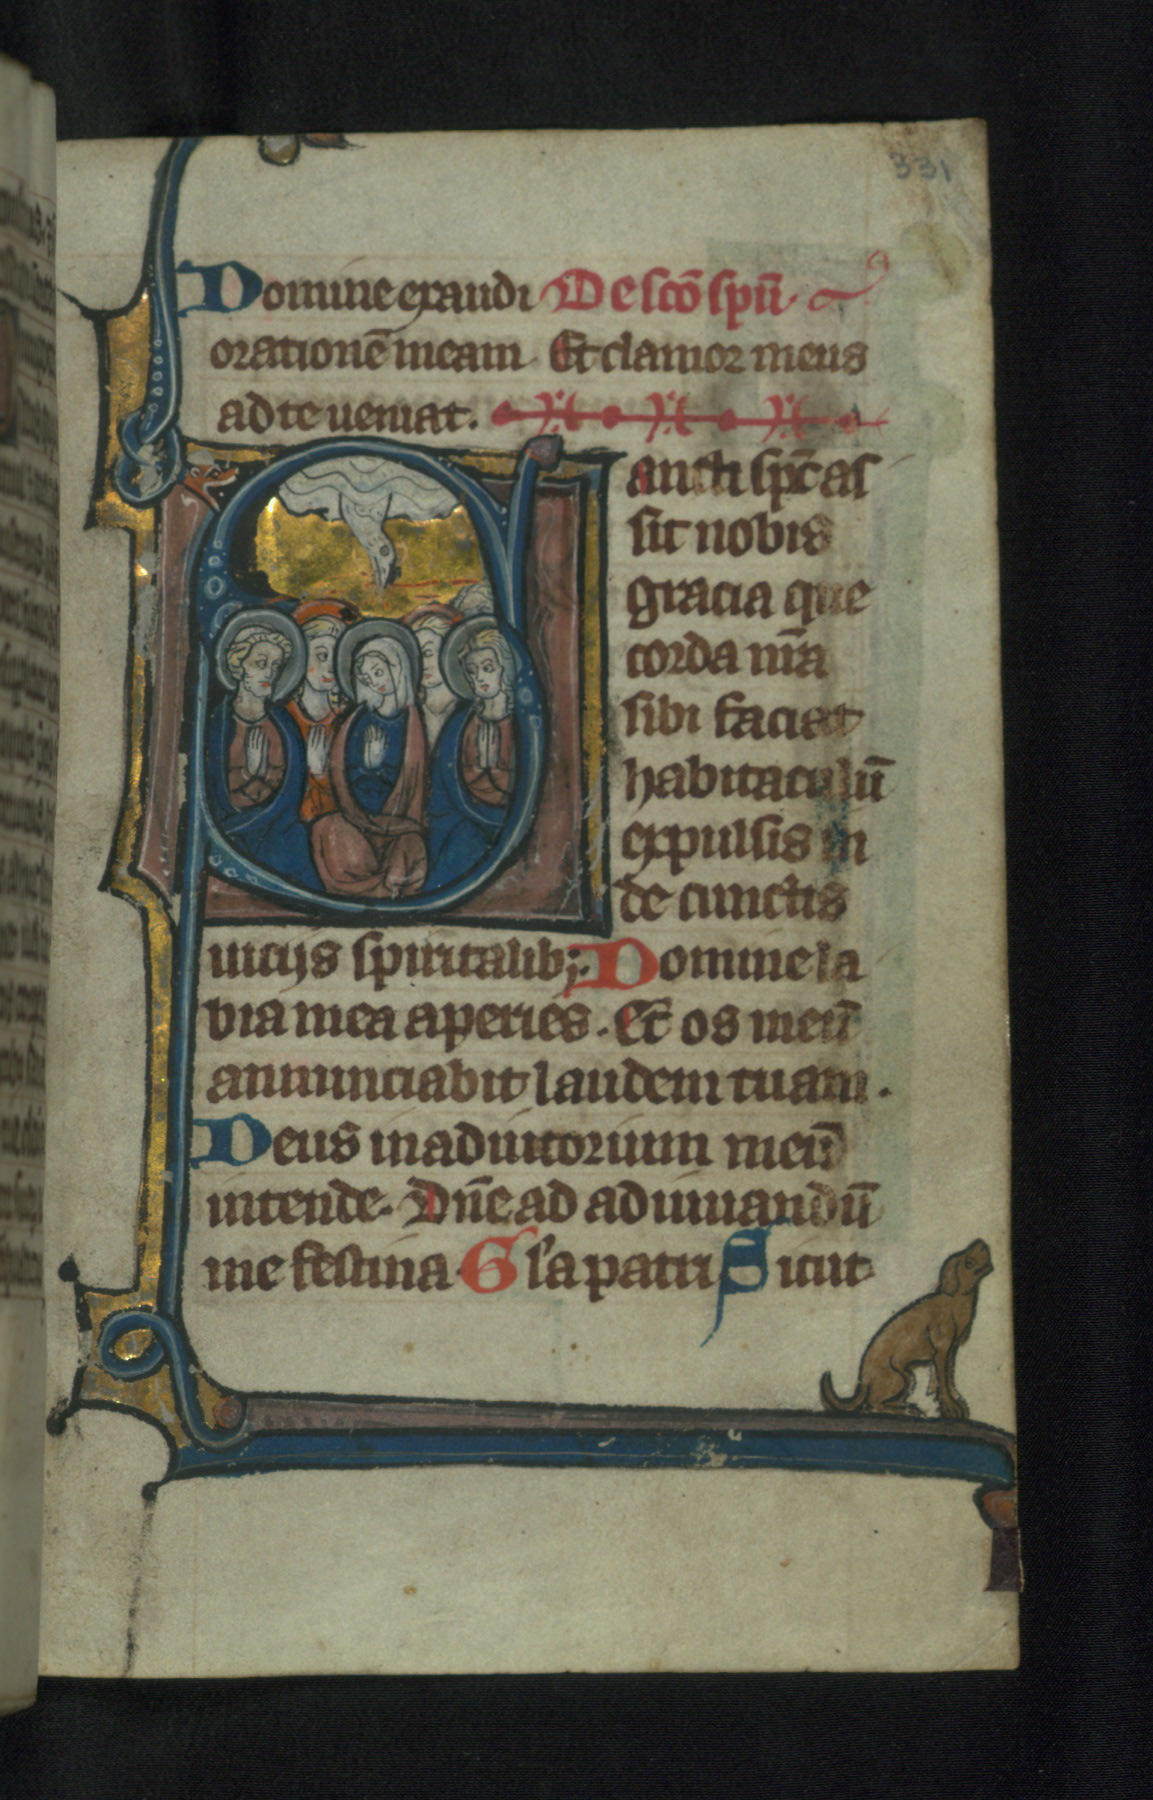 331
Domine exaudi De scō spū
orationē meam Et clamor meus
ad te ueniat.
ancti spc as
sit nobis
gracia que
corda nr̄a
sibi faciat
habitaculū
expulsis in
de cunctis
uicijs spiritalib; Domine la
bia mea aperies. Et os meū
annunciabit laudem tuam.
Deus in adiutorium meū
intende. Dn̄e ad adiuuandū
me festina Gl'a patri Sicut